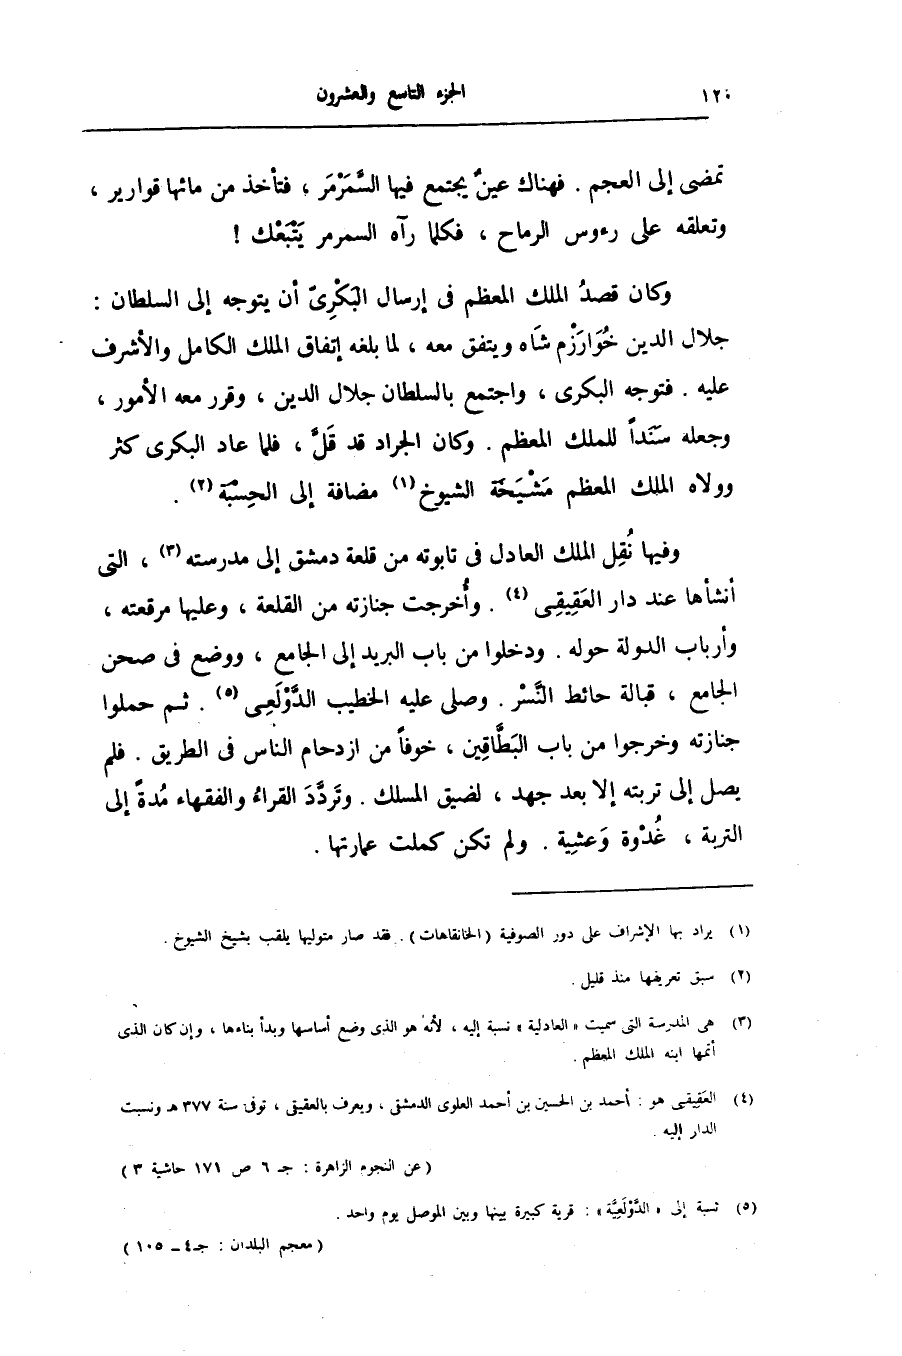 ١٢٠ الجزء التاسع والعشرون
تمضى إلى العجم . فهناك عينٌ يجتمع فيها السَّمَرْمَر ، فتأخذ من مائها قوارير ،
وتعلقه على رءوس الرماح ، فكلما رآه السمرمر يَتْبَعْك !
وكان قصدُ الملك المعظم فى إرسال البَكْرِىّ أن يتوجه إلى السلطان :
جلال الدين خُوَارَزْم شَاه ويتفق معه ، لما بلغه إتفاق الملك الكامل والأشرف
عليه . فتوجه البكرى ، واجتمع بالسلطان جلال الدين ، وقرر معه الأمور ،
وجعله سَنَداً للملك المعظم . وكان الجراد قد قَلَّ ، فلما عاد البكرى كثر
وولاه الملك المعظم مَشْيَخَة الشيوخ (١) مضافة إلى الحِسْبَة (٢) .
وفيها نُقِل الملك العادل فى تابوته من قلعة دمشق إلى مدرسته (٣) ، التى
أنشأها عند دار العَقِيقِى (٤) . وأُخرجت جنازته من القلعة ، وعليها مرقعته ،
وأرباب الدولة حوله . ودخلوا من باب البريد إلى الجامع ، ووضع فى صحن
الجامع ، قبالة حائط النَّسْر . وصلى عليه الخطيب الدَّوْلَعِى (٥) . ثم حملوا
جنازته وخرجوا من باب البَطَّاقِين ، خوفاً من ازدحام الناس فى الطريق . فلم
يصل إلى تربته إلا بعد جهد ، لضيق المسلك . وتَردَّدَ القراءُ والفقهاء مُدةً إلى
التربة ، غُدْوة وَعشية . ولم تكن كملت عمارتها .
(١) يراد بها الإشراف على دور الصوفية (الخانقاهات) . فقد صار متوليها يلقب بشيخ الشيوخ .
(٢) سبق تعريفها منذ قليل .
(٣) هى المدرسة التى سميت « العادلية » نسبة إليه ، لأنه هو الذى وضع أساسها وبدأ بناءها ، وإن كان الذى
أتمها ابنه الملك المعظم .
(٤) العَقِيقِى هو : أحمد بن الحسين بن أحمد العلوى الدمشقى ، ويعرف بالعقيقى ، توفى سنة ٣٧٧ هـ ونسبت
الدار إليه .
( عن النجوم الزاهرة : جـ ٦ ص ١٧١ حاشية ٣ )
(٥) نسبة إلى « الدَّوْلَعِيَّة » : قرية كبيرة بينها وبين الموصل يوم واحد .
( معجم البلدان : جـ٤ ــ ١٠٥ )